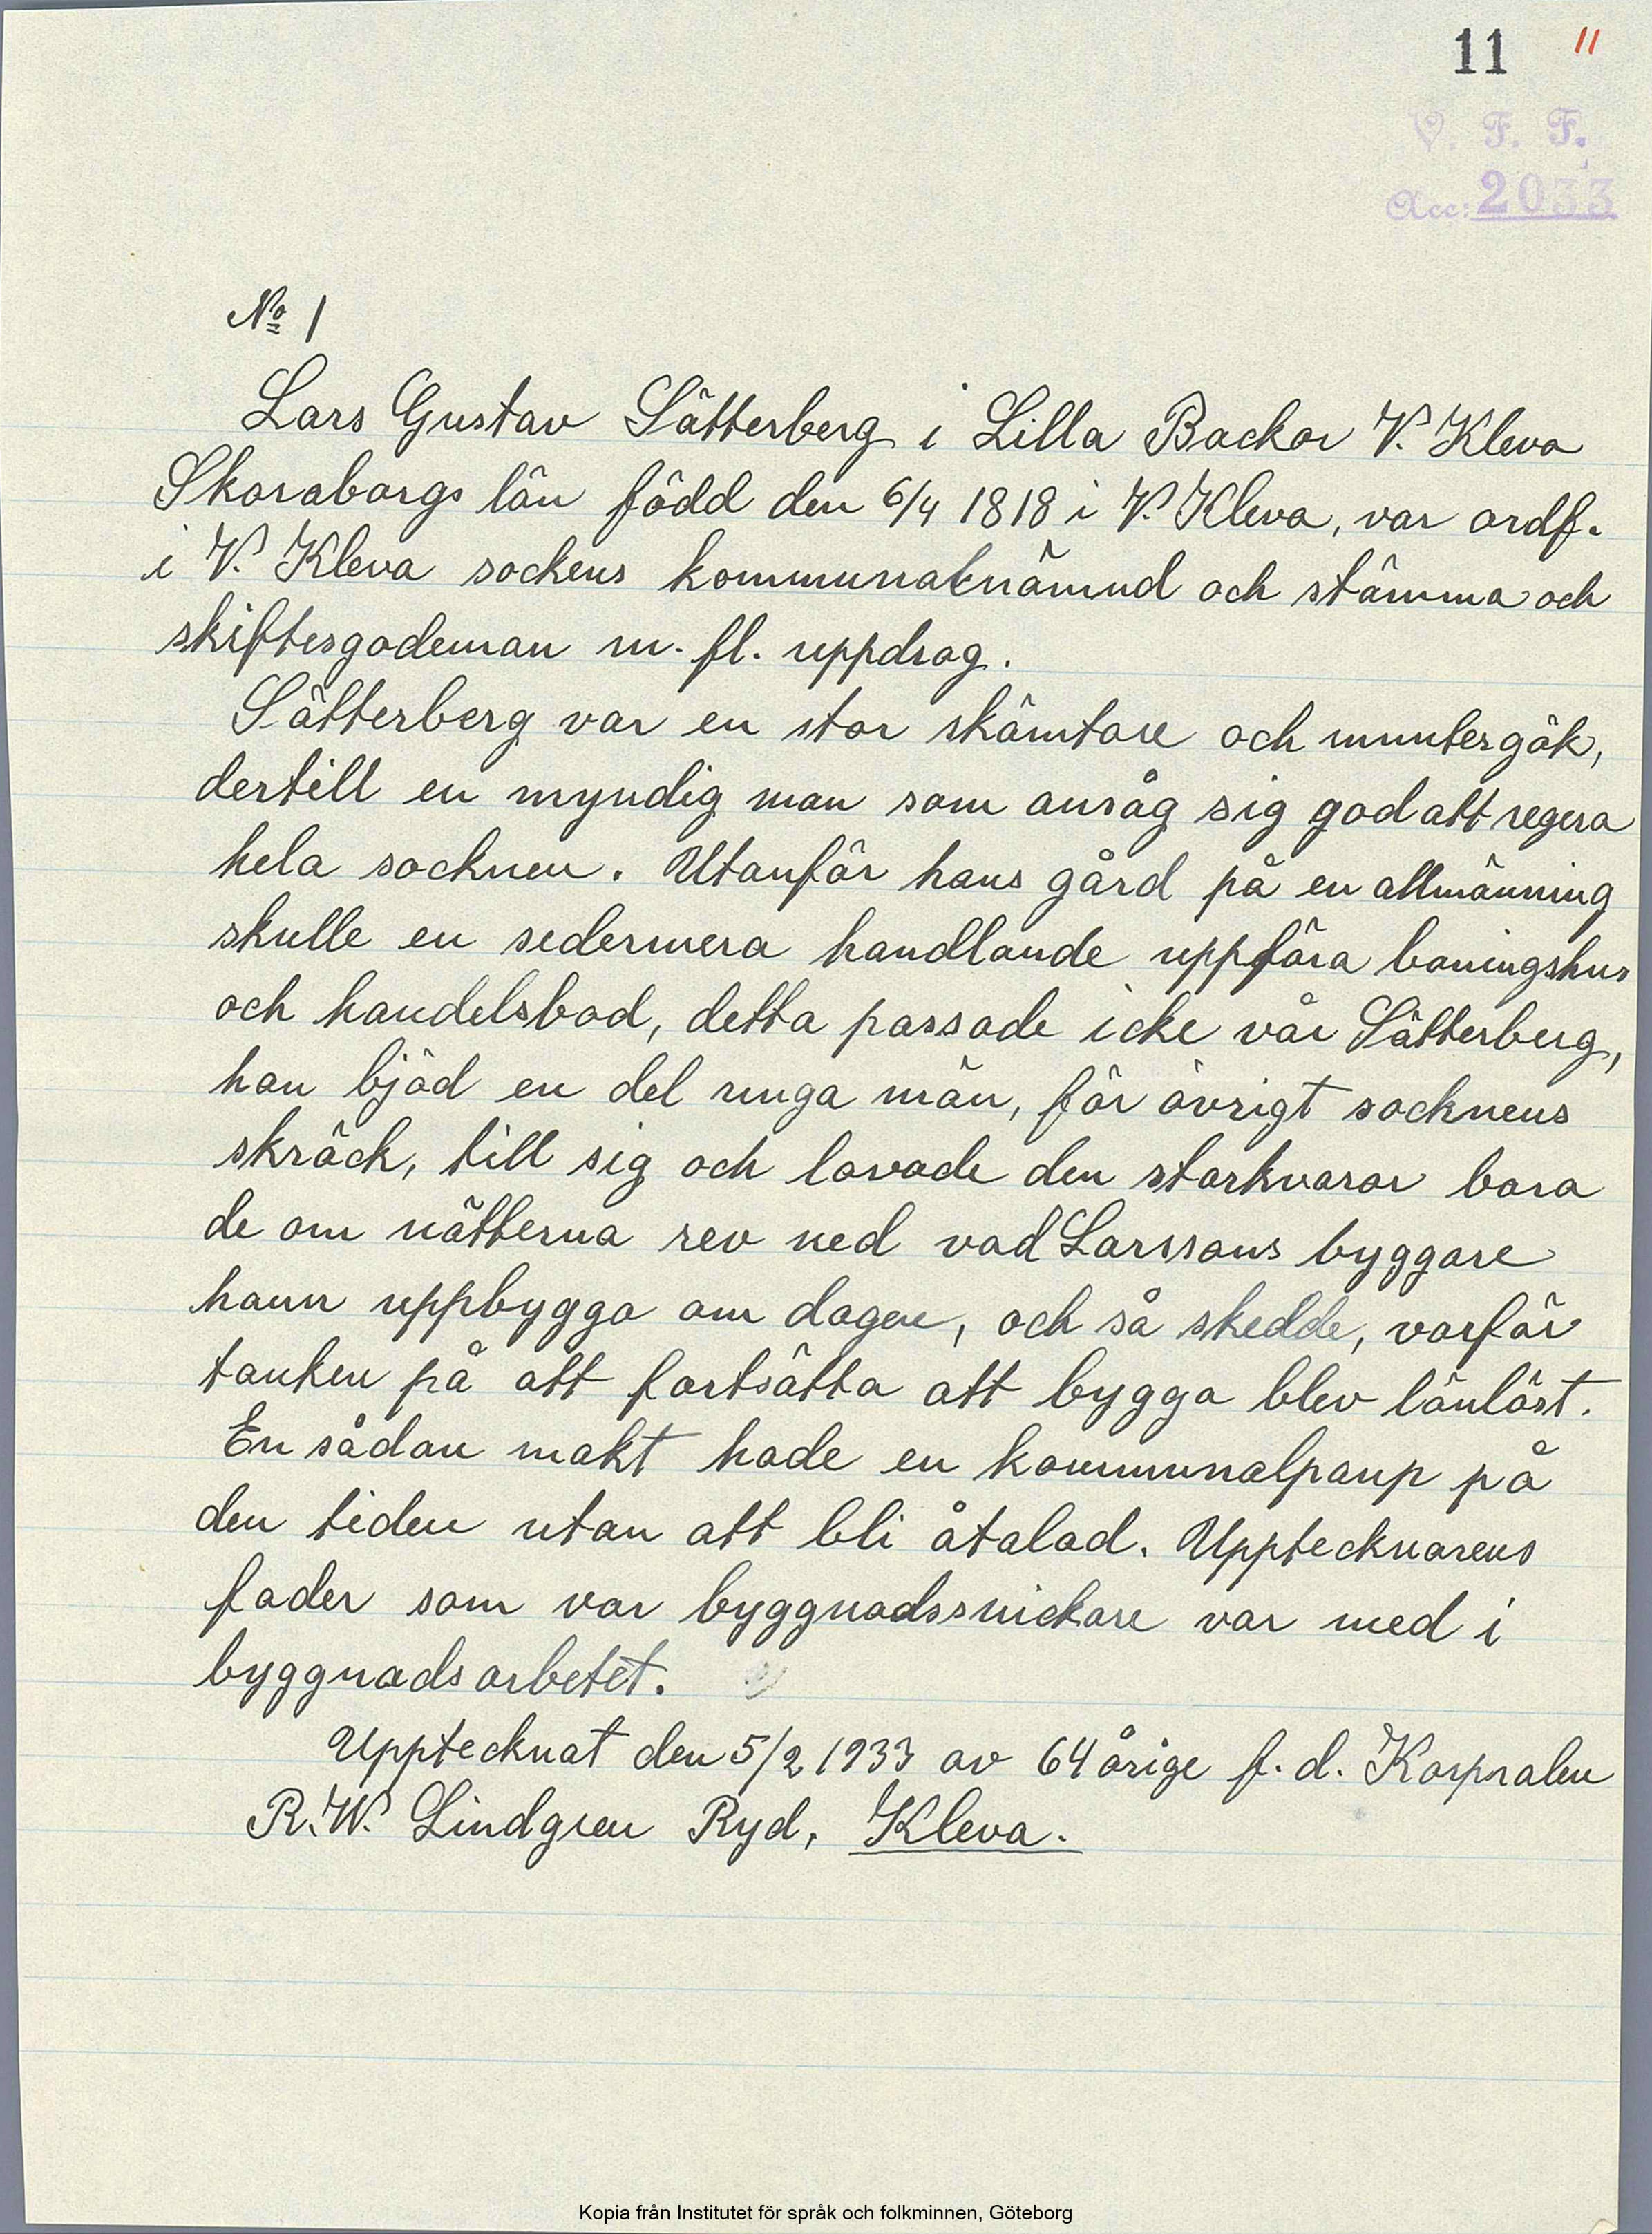 11 11
V. F. F.
Acc: 2033
No 1
Lars Gustav Sätterberg i Lilla Backor V. Kleva
Skaraborgs län född den 6/4 1818 i V. Kleva, var ordf.
i V. Kleva sockens kommunalnämnd och stämma och
skiftesgodeman m. fl. uppdrag.
Sätterberg var en stor skämtare och muntergök,
dertill en myndig man som ansåg sig god att regera
hela socknen. Utanför hans gård på en allmänning
skulle en sedermera handlande uppföra boningshus
och handelsbod, detta passade icke vår Sätterberg,
han bjöd en del unga män, för övrigt socknens
skräck, till sig och lovade den starkvaror bara
de om nätterna rev ned vad Larssons byggare
hann uppbygga om dagen, och så skedde, varför
tanken på att fortsätta att bygga blev lönlöst.
En sådan makt hade en kommunalpamp på
den tiden utan att bli åtalad. Upptecknarens
fader som var byggnadssnickare var med i
byggnadsarbetet.
Upptecknat den 5/2 1933 av 64 årige f. d. Korpralen
R. W. Lindgren Ryd, Kleva.
Kopia från Institutet för språk och folkminnen, Göteborg